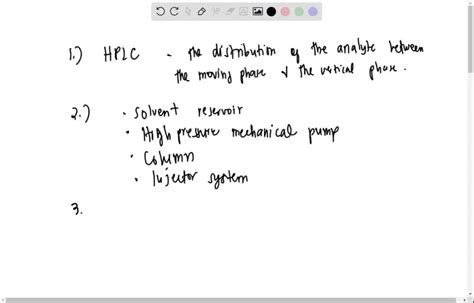 1.) HPLC - the distribution of the analyte between
the moving phase & the vertical phase.
2.) • solvent reservoir
• High pressure mechanical pump
• Column
• Injector system
3.